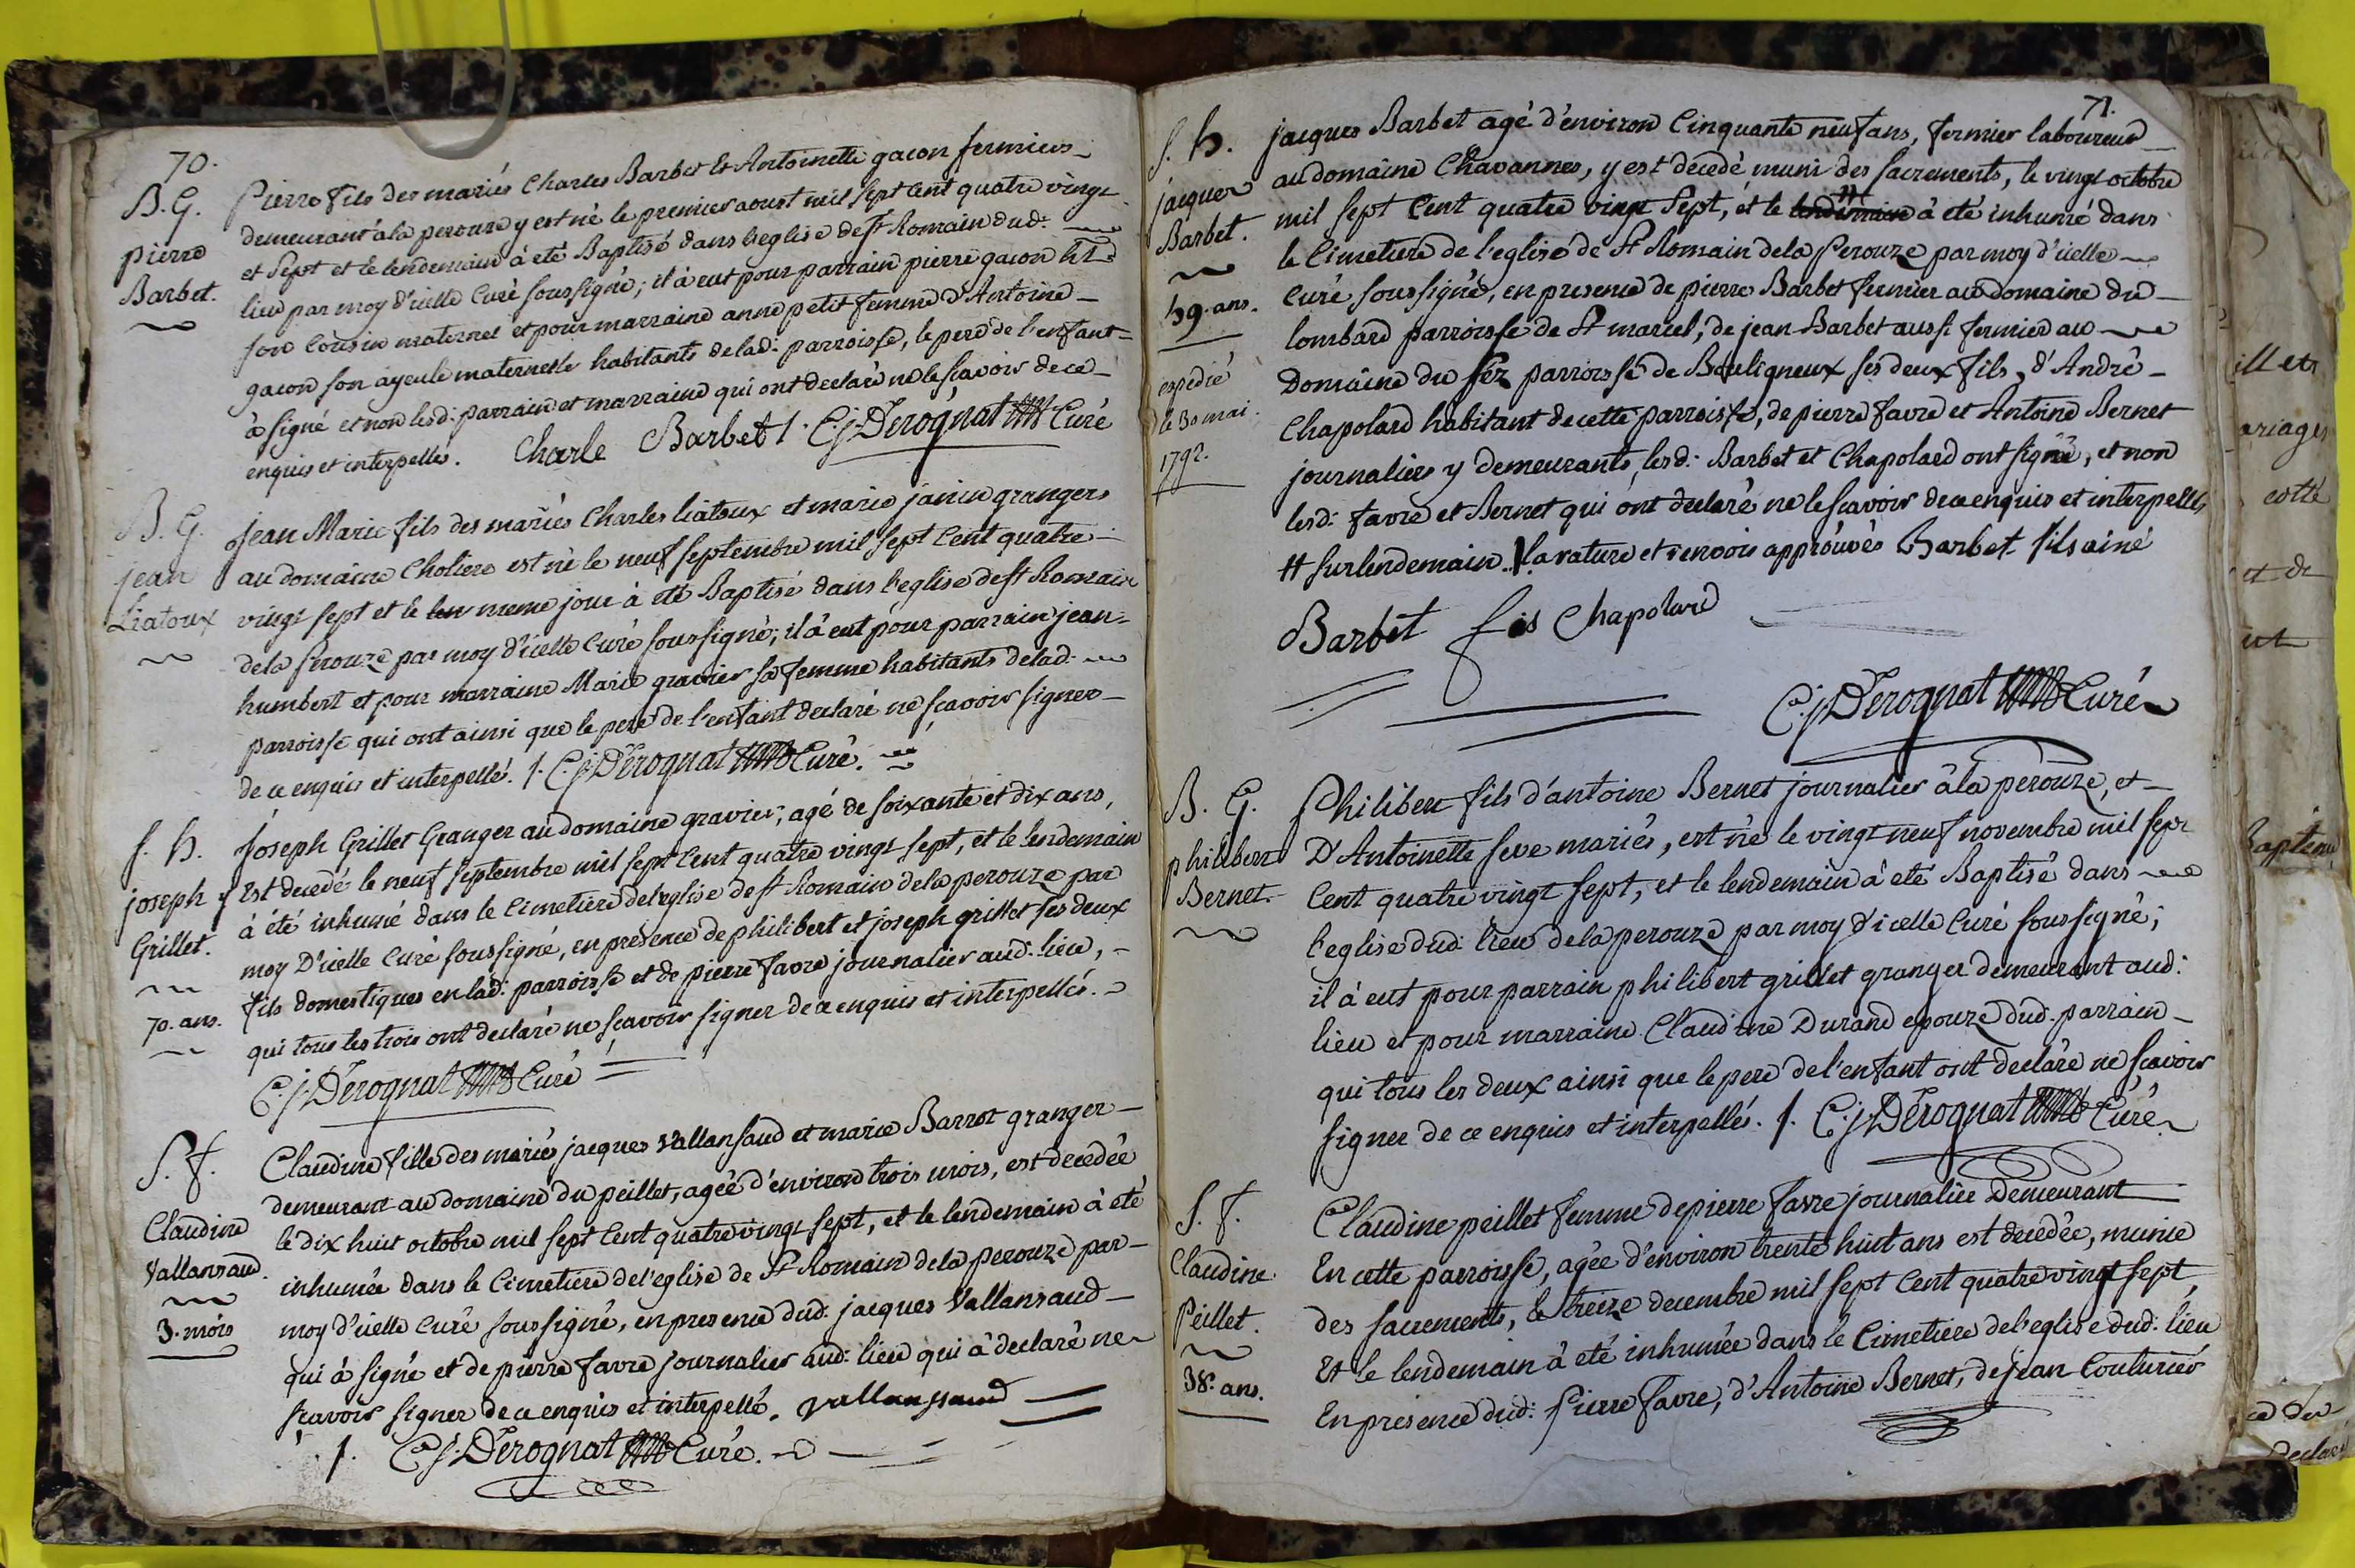 70.
B. G.
pierre
Barbet.
Pierre fils des mariés Charles Barbet et Antoinette gacon fermiers
demeurant à la perouze y est né le premier aoust mil sept cent quatre vingt
et sept et le lendemain à eté Baptisé dans l'eglise de st Romain dud:
lieu par moy d'icelle Curé soussigné; il à eut pour parrain pierre gacon
son cousin maternel et pour marraine anne petit femme d'Antoine
gacon son ayeule maternelle habitants de lad: parroisse, le pere de l'enfant
à signé et non lesd: parrain et marraine qui ont declaré ne le scavoir de ce
enquis et interpellés. Charle Barbet /. C. j. Derognat Curé
B. G.
jean
Liatoux
Jean Marie fils des mariés Charles liatoux et marie janin grangers
au domaine Choliere est né le neuf septembre mil sept cent quatre
vingt sept et le len meme jour à eté Baptisé dans l'eglise de st Romain
de la perouze par moy d'icelle Curé soussigné; il à eut pour parrain jean
humbert et pour marraine Marie gravier sa femme habitants de lad:
parroisse qui ont ainsi que le pere de l'enfant declaré ne scavoir signer
de ce enquis et interpellé. /. C. j. Derognat Curé.
S. h.
joseph
Grillet.
70. ans.
Joseph Grillet Granger au domaine gravier, agé de soixante et dix ans,
Est decedé le neuf septembre mil sept cent quatre vingt sept, et le lendemain
à été inhumé dans le cimetiere de l'eglise de st Romain de la perouze par
moy D'icelle Curé soussigné, en presence de philibert et joseph grillet ses deux
fils domestiques en lad: parroisse et de pierre favre journalier aud: lieu,
qui tous les trois ont declaré ne scavoir signer de ce enquis et interpellés.
C. j. Derognat Curé
S. f.
Claudine
Vallansaud.
3. mois
Claudine fille des mariés jacques Vallansaud et marie Barrot granger
demeurant au domaine du peillet, agée d'environ trois mois, est decedée
le dix huit octobre mil sept cent quatre vingt sept, et le lendemain à eté
inhumée dans le Cimetiere de l'eglise de St Romain de la perouze par
moy d'icelle Curé soussigné, en presence dud: jacques Vallansaud
qui à signé et de pierre favre journalier aud: lieu qui à declaré ne
scavoir signer de ce enquis et interpellé. vallanssaud
/. C. j. Derognat Curé.
71.
S. h.
jacques
Barbet.
59. ans.
expedié
le 30 mai
1792.
jacques Barbet agé d'environ Cinquante neuf ans, fermier laboureur
au domaine Chavannes, y est décedé muni des sacrements, le vingt octobre
mil sept cent quatre vingt sept, et le lendemain # à eté inhumé dans
le Cimetiere de l'eglise de St Romain de la Perouze par moy d'icelle
Curé soussigné, en presence de pierre Barbet fermier au domaine du
lombard parroisse de St marcel, de jean Barbet aussi fermier au
Domaine du fez parroisse de Bouligneux ses deux fils, d'André
Chapolard habitant de cette parroisse, de pierre favre et Antoine Bernet
journaliers y demeurants, lesd: Barbet et Chapolard ont signé, et non
lesd: favre et Bernet qui ont declaré ne le scavoir de ce enquis et interpellés
# surlendemain. \ rature et renvois approuvés Barbet fils ainé
Barbet fis Chapolard
C. j. Derognat Curé
B. G.
philibert
Bernet.
Philibert fils d'antoine Bernet journalier à la perouze, et
D'Antoinette seve mariés, est né le vingt neuf novembre mil sept
Cent quatre vingt sept, et le lendemain à eté Baptisé dans
l'eglise dud: lieu de la perouze par moy d'icelle Curé soussigné;
il à eut pour parrain philibert grillet granger demeurant aud:
lieu et pour marraine Claudine Durand epouze dud: parrain
qui tous les deux ainsi que le pere de l'enfant ont declaré ne scavoir
signer de ce enquis et interpellés. /. C. j. Derognat Curé
S. f.
Claudine
Peillet.
38. ans.
Claudine peillet femme de pierre favre journalier Demeurant
En cette parroisse, agée d'environ trente huit ans est decedée, munie
des sacrements, le treize decembre mil sept cent quatre vingt sept,
Et le lendemain à eté inhumée dans le Cimetiere de l'eglise dud: lieu
En presence dud: Pierre favre, d'Antoine Bernet, de jean Couturier